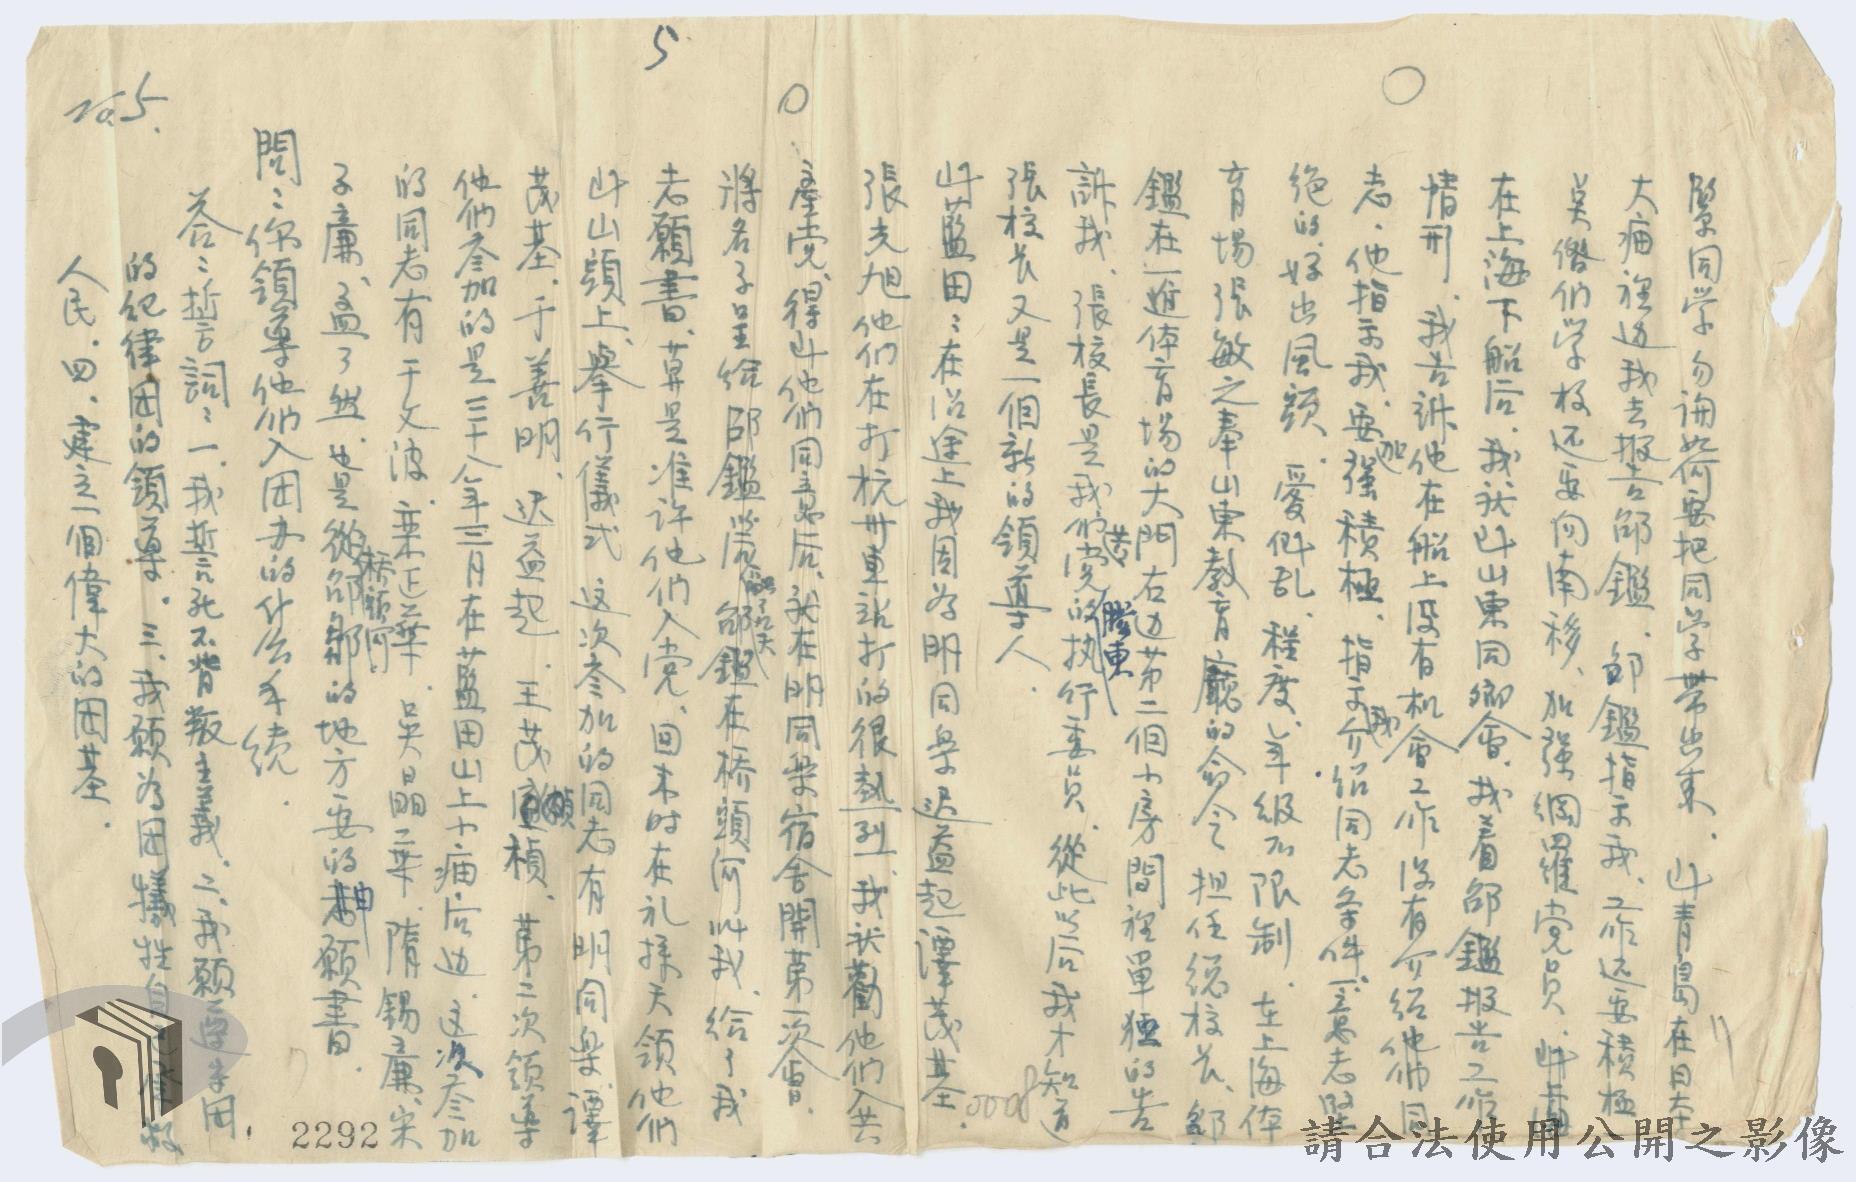 5
No.5.
緊同学勿論如何要把同学帶出來．山青島在日本
大廟裡边我去报告邹鑑．邹鑑指示我．工作还要積極
告僭們学校还要向南移．加强綱羅党员．山上海
在上海下船后．我於山東同鄉會．找着邹鑑报告工作
情形．我告訴他在船上没有机會工作没有介绍他們同
志．他指示我．要加强積極．指示我介绍同志条件．意志坚
绝的．好出風頭．愛倒乱．程度．年級不限制．在上海体
育場張敏之奉山東教育廳的命令担任總校长．邹
鑑在一進体育場的大門右边第二個小房間裡單獨的告
訴我．張校長是我們党的膠東执行委員．從此以后我才知道
張校长又是一個新的領導人．
山藍田：在沿途上我因為明同樂遲益起譚茂基．
張光旭他們在打杭州車站打的很熱烈．我於勸他們入共
產党．得山他們同意后．我在明同樂宿舍開第一次會．
將名子呈给邹鑑党部了天邹鑑在桥頭河叫我．给了我
志願書．算是准许他們入党．回来时在礼拜天領他們
山山頭上．舉行儀式 这次參加的同志有明同樂．譚
茂基．于善明．迟益起．王茂禎．第二次領導
他們參加的是三十八年三月在藍田山上小廟后边．这次參加
的同志有于文波．棄正華．吳晶棄．隋錫廉．宋
子廉．孟了然．也是從桥頭河邹鑑的地方要的申願書．
問：你領導他們入团办的什么手续．
答：誓言詞：一．我誓言死不背叛主義．二．我願遵守团
的纪律团的領導．三．我願為团犧牲自己
人民．四．建立一個偉大的团基．
0008
2292
請合法使用公開之影像